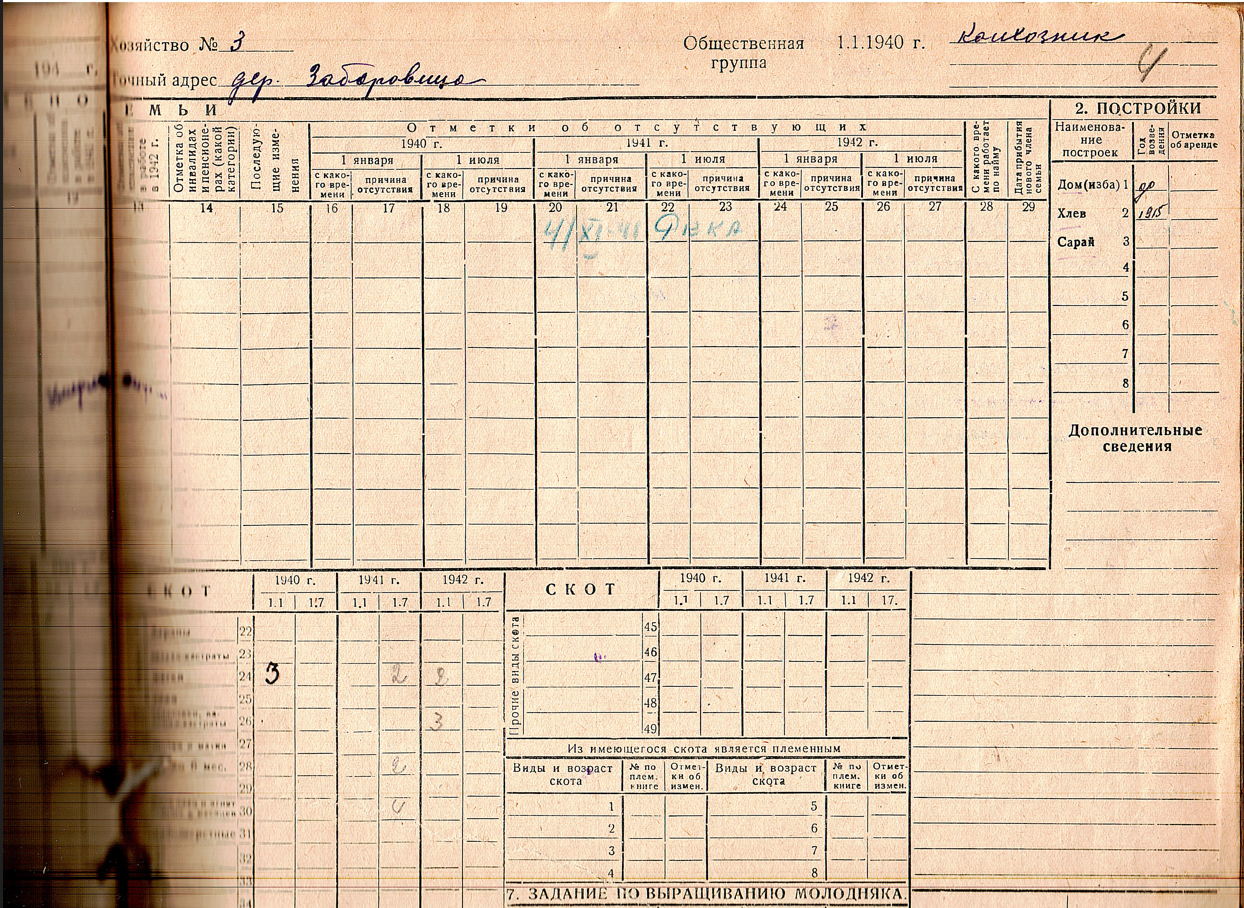 Хозяйство № 3
Общественная группа 1.1.1940 г. Колхозник
4
Точный адрес дер. Заборовища
194 г.
ЕМЬИ
2. ПОСТРОЙКИ
Отметка об инвалидах и пенсионерах (какой категории)
Последующие изменения
Отметки об отсутствующих
1940 г. 1941 г. 1942 г.
1 января 1 июля 1 января 1 июля 1 января 1 июля
с какого времени причина отсутствия с какого времени причина отсутствия с какого времени причина отсутствия с какого времени причина отсутствия с какого времени причина отсутствия с какого времени причина отсутствия
С какого времени работает по найму
Дата прибытия нового члена семьи
Наименование построек
Год возведения
Отметка об аренде
в работе в 1942 г.
13 14 15 16 17 18 19 20 21 22 23 24 25 26 27 28 29
41 XI-41
Дом (изба) 1 др
Хлев 2 1915
Сарай 3
4
5
6
7
8
Дополнительные сведения
СКОТ
1940 г. 1941 г. 1942 г.
1.1 1.7 1.1 1.7 1.1 1.7
22
23
24 3 2 2
25
26 3
27
28 2
29
30 4
31
32
33
34
СКОТ
1940 г. 1941 г. 1942 г.
1.1 1.7 1.1 1.7 1.1 17.
Прочие виды скота
45
46
47
48
49
Из имеющегося скота является племенным
Виды и возраст скота № по плем. книге Отметки об измен. Виды и возраст скота № по плем. книге Отметки об измен.
1 5
2 6
3 7
4 8
7. ЗАДАНИЕ ПО ВЫРАЩИВАНИЮ МОЛОДНЯКА.